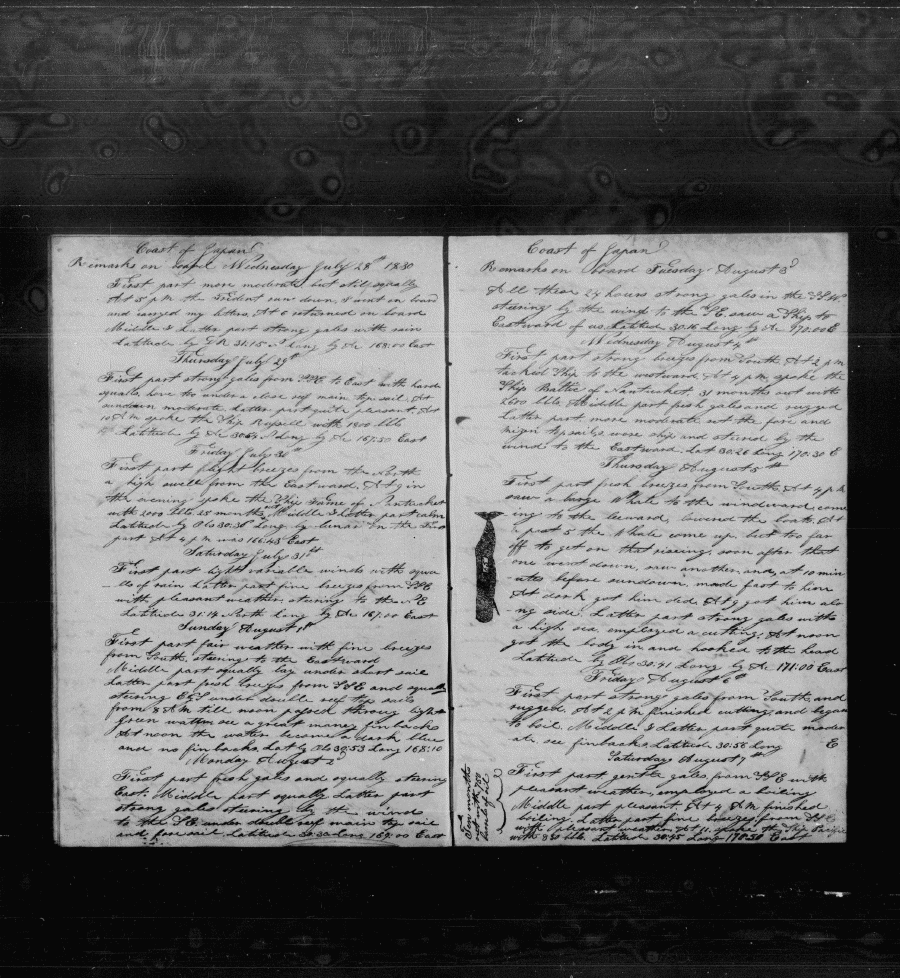 Coast of Japan
Remarks on board Wednesday July 28th 1830
First part more moderate but still squally
At 5 p m the Trident ran down, I went on board
and carried my letters, At 6 returned on board
Middle & Latter part strong gales with rain
Latitude by DR 31:15 N Long by Ac 168:00 East
Thursday July 29th
First part strong gales from SSE to East with hard
squalls, hove to under a close reef main top sail, At
sundown moderate latter part quite pleasant, At
10 A m spoke the Ship Russell with 1800 bbls
Latitude by Ac 30:54 N Long by Ac 167:30 East
Friday July 30th
First part light breezes from the North
a high swell from the Eastward, At 7 in
the evening spoke the Ship Fame of Nantucket
with 2000 bbls 23 months, Middle & Latter part calm
Latitude by Obs 30:36 Long by lunar in the
part At 4 p m was 166:43 East
Saturday July 31st
First part light variable winds with squa
-lls of rain Latter part fine breezes from SSE
with pleasant weather, steering to the NE
Latitude 31:14 North Long by Ac 167:00 East
Sunday August 1st
First part fair weather with fine breezes
from South, steering to the Eastward
Middle part squally lay under short sail
Latter part fresh breezes from SSE and squally
steering EBS under double reef top sails
from 8 AM till noon passed through light
green water, see a great many fin backs
At noon the water became a dark blue
and no fin backs, Lat by Obs 30:53 Long 168:10
Monday August 2d
First part fresh gales and squally steering
East, Middle part squally Latter part
strong gales steering by the wind
to the SE under double reef main top sail
and fore sail Latitude 30:30 Long 169:00 East
Coast of Japan
Remarks on board Tuesday August 3d
All these 24 hours strong gales in the SSW
steering by the wind to the SE. saw a Ship to
Eastward of us, Latitude 30:16 Long by Ac 170:00 E
Wednesday August 4th
First part strong breezes from South, At 2 p m
tacked Ship to the westward, At 4 p m spoke the
Ship of Nantucket, 31 months out with
2600 bbls Middle part fresh gales and rugged
Latter part more moderate out the fore and
mizen topsails wore ship and steered by the
wind to the Eastward, Lat 30:26 Long 170:30 E
Thursday August 5th
First part fresh breezes from South, At 4 p m
saw a large Whale to the windward, com
ing to the leeward, lowered the boats, At
1/2 past 5 the Whale come up, but too far
off to get on that riseing, soon after that
one went down, saw another, and, at 10 min
utes before sundown, made fast to him
At dark got him ded, At 9 got him alo
-ng side, Latter part strong gales with
a high sea, employed a cutting, At noon
got the body in and hooked to the head
Latitude by Obs 30:41 Long by Ac 171:00 East
Friday August 6th
First part strong gales from South, and
rugged, At 2 p m finished cutting, and began
to boil, Middle & Latter part quite moder
ate. see finbacks, Latitude 30:56 Long E
Saturday August 7th
First part gentle gales from SSE with
pleasant weather, employed a boiling
Middle part pleasant, At 4 A m finished
boiling, Latter part fine breezes from SSE
with pleasant weather At 11 spoke the Ship Pacific
with 850 bbls. Latitude 30:45 Long 170:30 East
Ten months
out with 700
barrels of oil